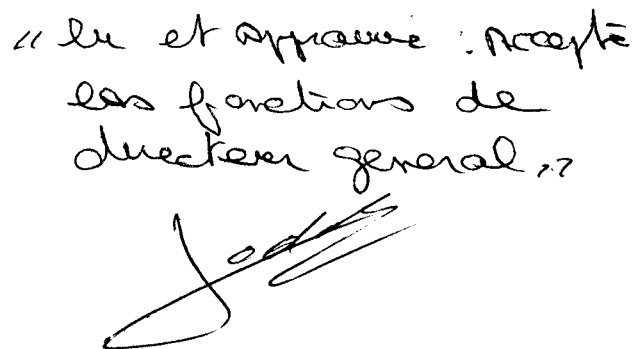 "lu et approuvé : Accepte
les fonctions de
directeur general"